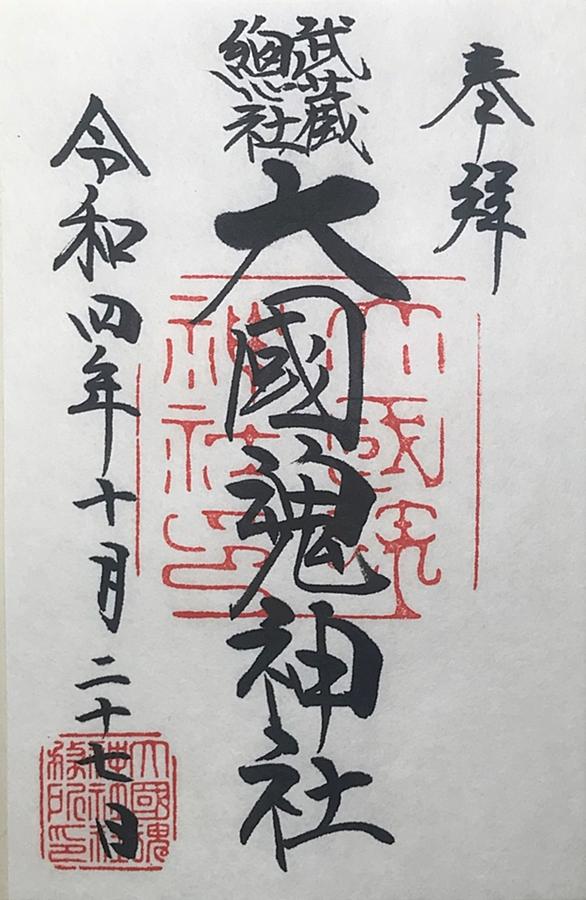 奉拝
武蔵
緫社
大國魂神社
令和四年十月二十七日
大國魂
神社印